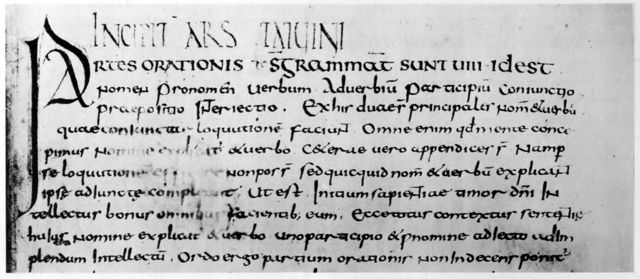 INCIPIT ARS TATUINI
PARTES ORATIONIS GRAMMAT SUNT VIIII IDEST
Nomen Pronomen verbum Adverbiū Participiū Coniunctio
praepositio INteriectio. Ex his duae s̄ principales Nom̄ & verbū
quae coniunctae loquutionē faciunt. Omne enim qd mente conce
pimus Nomine & verbo. Ceterae vero appendices s̄. Namp
se loquutionē Non pos s̄ sed quicquid nom̄ & verbū explicant
ipse adiuncte complent. Ut est. Initium sapientiae timor dn̄i IN
tellectus bonus omnibus facientib; eum. contextus
huius Nomine explicat & verbo uno participio & pnomine adiecto ad im
plendum intellectū. Ordo ergo partium orationis Non indecens